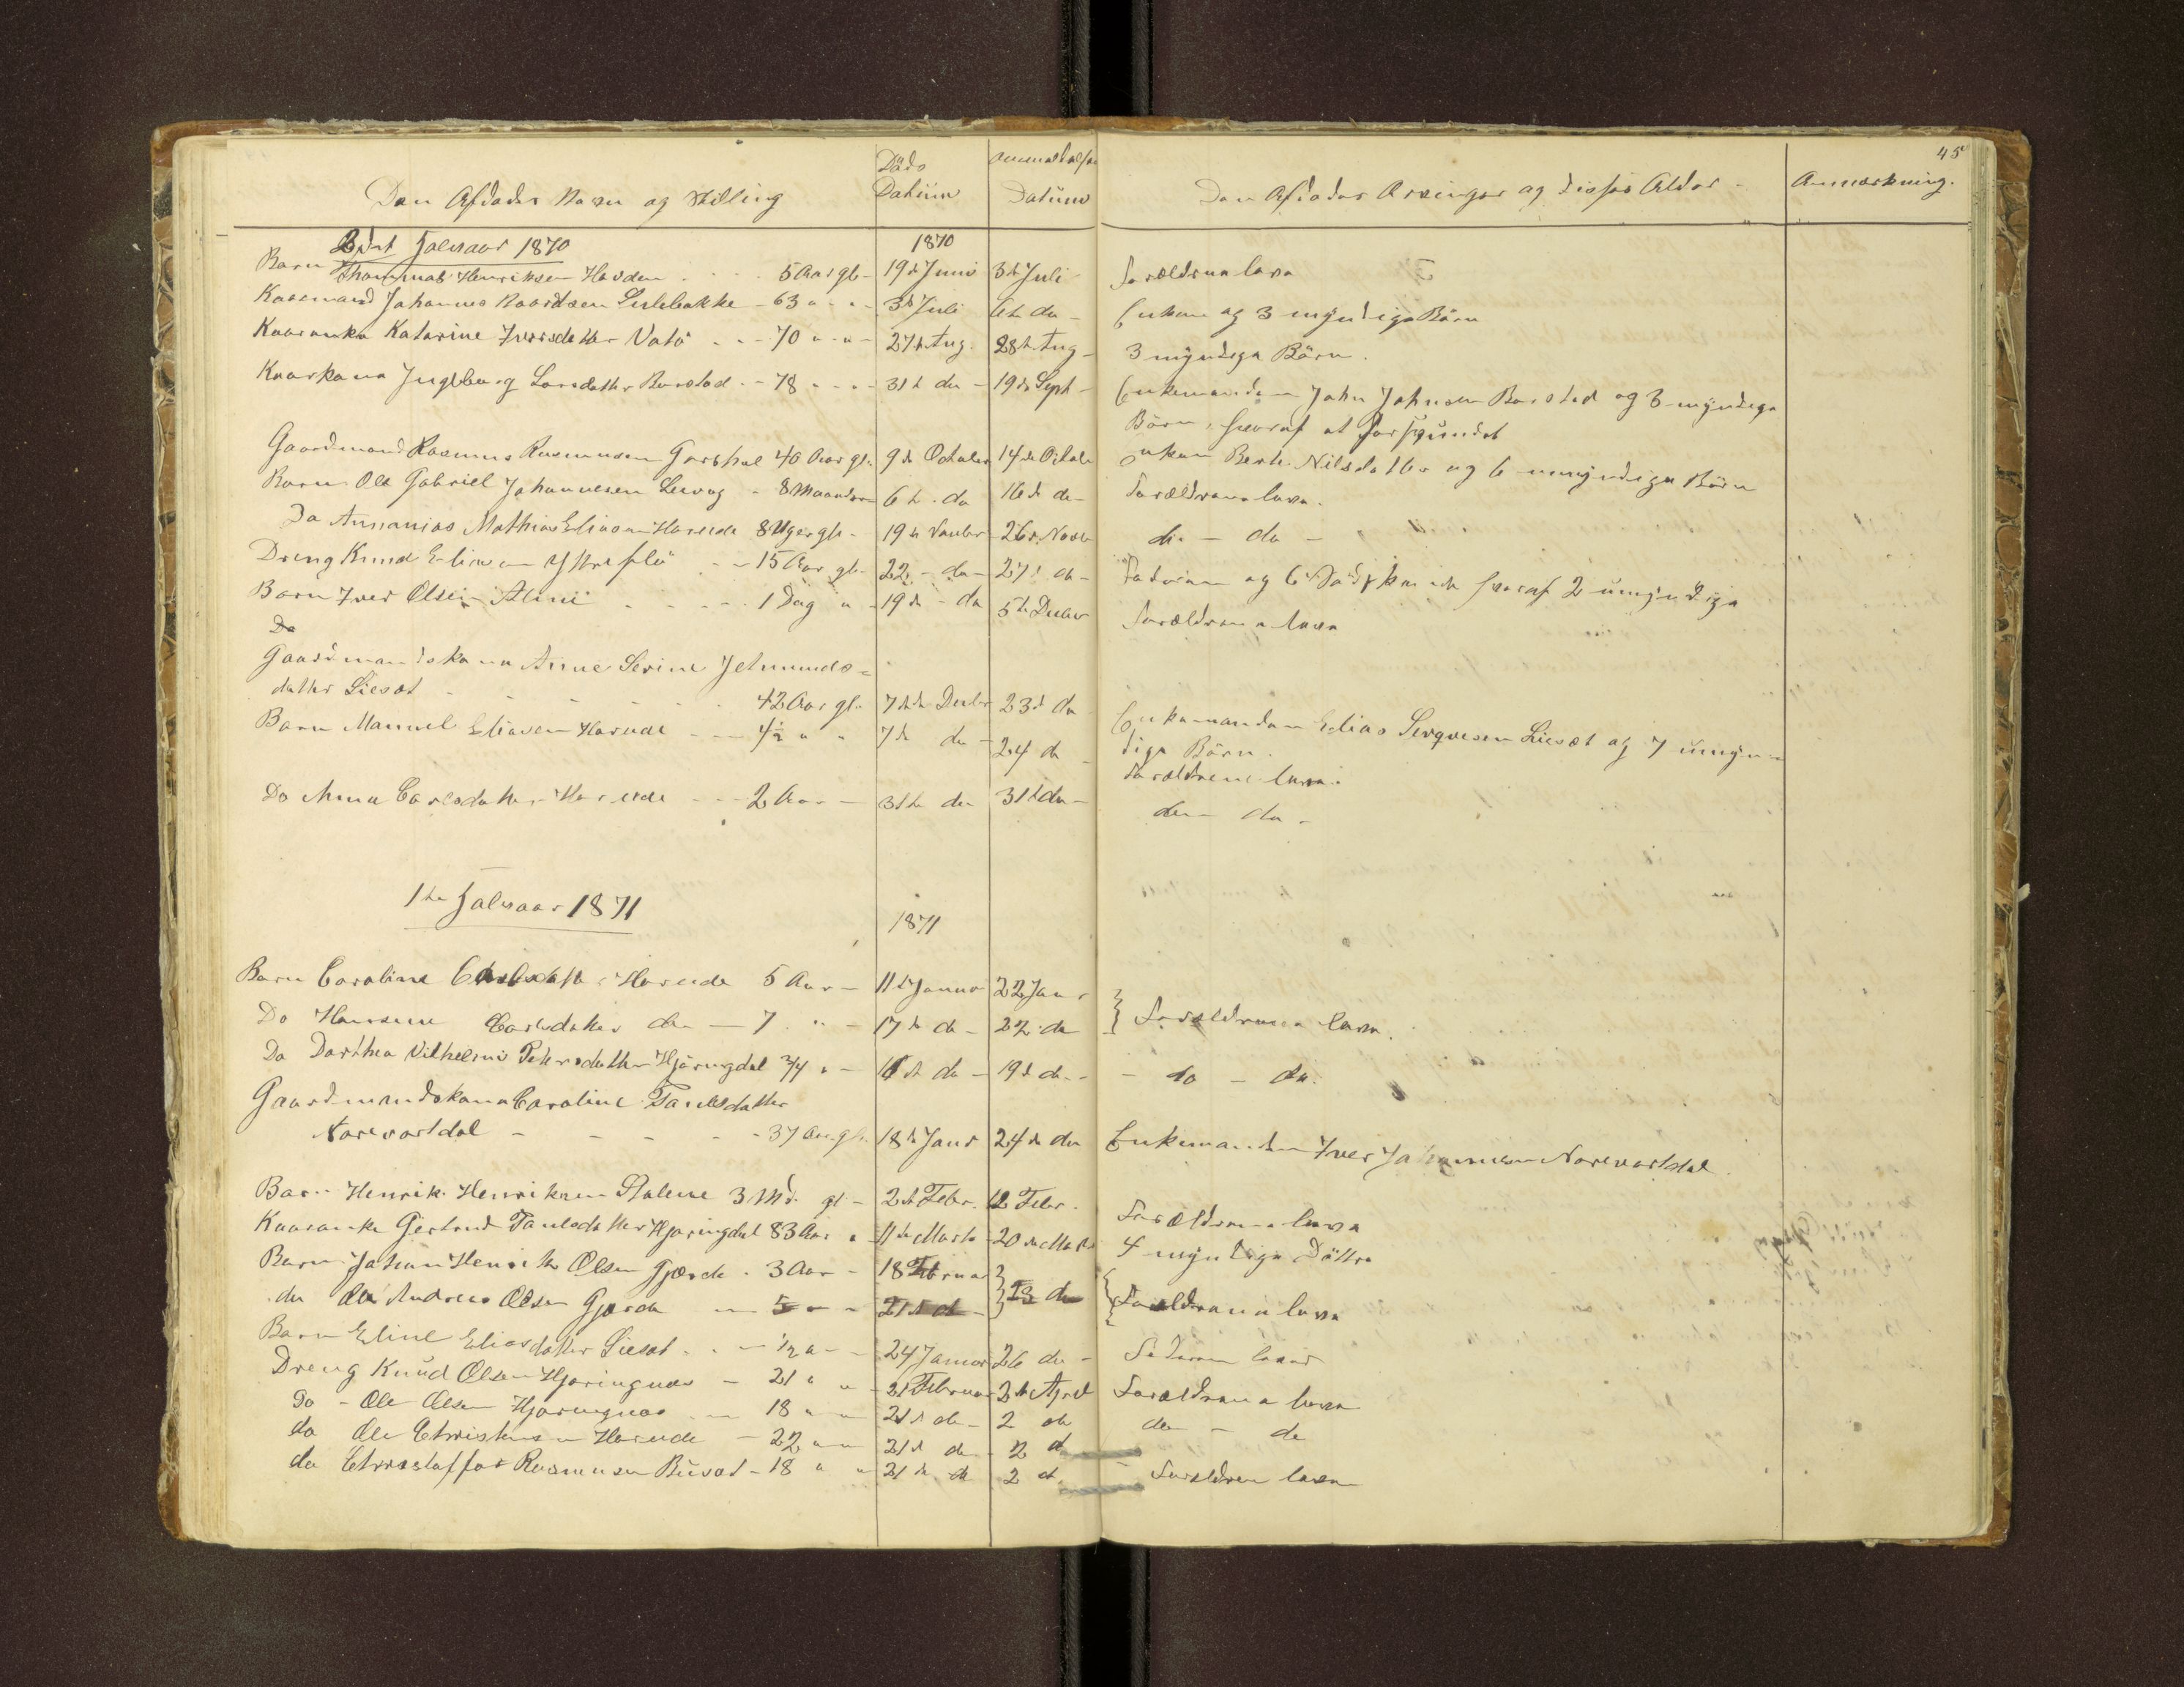 45
Den Afdødes Navn og Stilling
Døds Datüm
Anmeldelses Datüm
Den Afdødes Arvinger og disses Alder
Anmærkning.
2det Halvaar 1870
1870
Barn Thommas Henriksen Hovden 5 Aar gl. 19de Juni 3de Juli Forældrene leve
Kaarmand Johannes Knudsen Sulebakke 63 " " 3de Juli 6te do Enken og 3 myndige Børn
Kaarenke Katarine Iversdatter Vatö 70 " " 27de Aug. 28de Aug 3 myndige Börn.
Kaarkone Ingeborg Larsdatter Barstad 78 " " 31te do 19de Sept Enkemanden John Johnsen Barstad og 3 myndige
Börn, hvoraf et
Gaardmand Rasmus Rasmussen Garshol 40 Aar gl. 9de October 14de Octob Enken Berte Nilsdatter og 6 umyndige Börn
Barn Ole Gabriel Johannesen Lervag 8 Maaneder 6te do 16de do Forældrene leve.
Do Annanias Mathias Eliasen Hareide 8 Uger gl. 19de Novbr 26de Novbr do - do -
Dreng Knud Eliasen Ytreflö 15 Aar gl. 22. do 27de do Faderen og 6 Södskende hvoraf 2 umyndige
Barn Iver Olsen Alme 1 Dag " 19de do 5te Decbr Forældrene leve
Do
Gaardmandskone Anne Serine Jetmunds=
datter Liesæt 42 Aar gl. 7de Decbr 23de do Enkemanden Elias Sivertsen Liesæt og 7 umyn=
dige Börn.
Barn Manuel Eliasen Hareide 4½ " " 7de do 24 do Forældrene leve.
Do Anna Carlsdatter Hareide 2 Aar 31te do 31te do do - do -
1ste Halvaar 1871
1871
Barn Caroline Carlsdatter Hareide 5 Aar 11te Januar 22 Jan Forældrene leve.
Do Hansine Carlsdatter do 7 " 17de do 22 do
Do Dorthea Vilhelmine Petersdatter Hjörungdal 3/4 " 16de do 19de do - do - do.
Gaardmandskone Caroline Paulsdatter
Norevartdal 37 Aar gl. 18de Janr 24de do Enkemanden Iver Johannesen Norevartdal.
Barn Henrik Henriksen Stalene 3 Md. gl. 2de Febr. 12 Febr. Forældrene leve
Kaarenke Gjertrud Paulsdatter Hjöringdal 83 Aar " 11te Marts 20de Marts 4 myndige Döttre
Barn Johan Henrik Olsen Gjærde 3 Aar 18 Februar 23 do Forældrene leve
do Andreas Olsen Gjærde 5 " " 21de do
Barn Eline Eliasdatter Liesæt ½ a 24 Januar 26 do Faderen lever
Dreng Knüd Olsen Hjöringnæs 21 " " 21 Februar 2de April Forældrene leve
Do Ole Olsen Hjöringnæs 18 " " 21de do 2 do do - do
do Ole Christensen Hareide 22 " " 21de do 2 do
do Christoffer Rasmusen Büset 18 " " 21de do 2 do Forældren leve